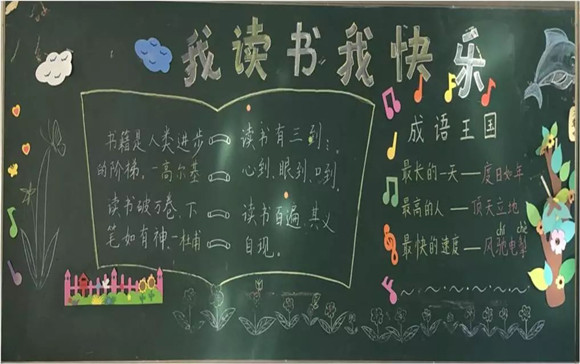 我读书我快乐
书籍是人类进步
的阶梯。一高尔基
读书破万卷、下
笔如有神一杜甫
读书有三到:。
心到、眼到、口到。
读书百遍、其义
自现。
成语王国
最长的一天——度日如年
最高的人——顶天立地
chí chè
最快的速度——风驰电掣